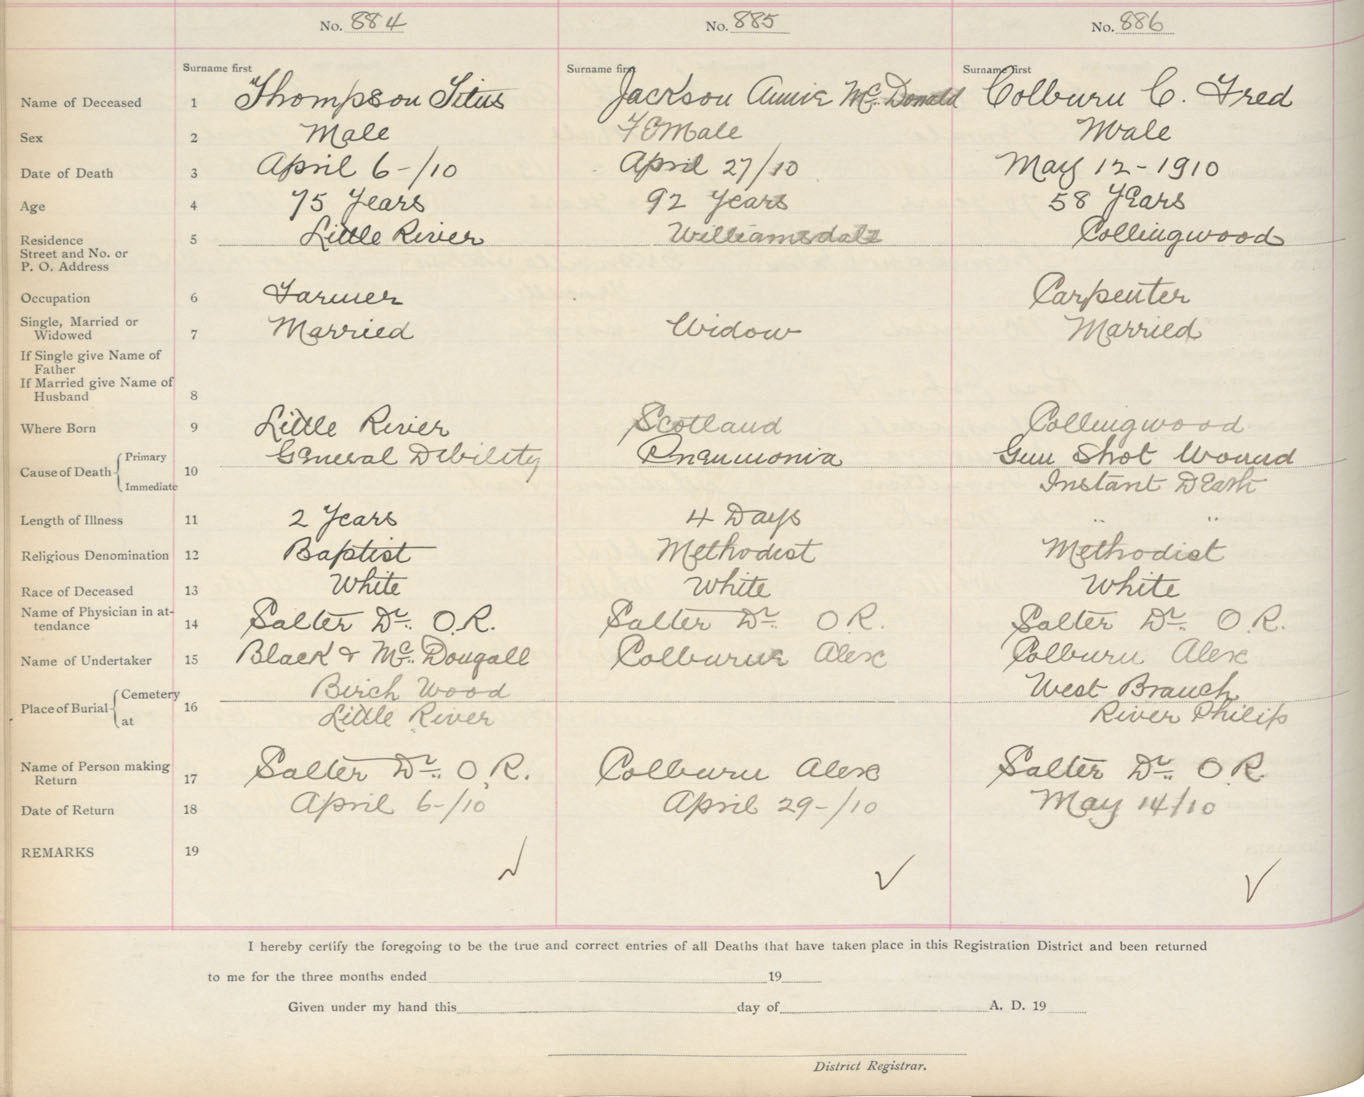 No. 884 No. 885 No. 886
Surname first Surname first Surname first
Name of Deceased 1 Thompson Titus Jackson Annie McDonald Colburn C. Fred
Sex 2 Male FEMale Male
Date of Death 3 April 6-/10 April 27/10 May 12-1910
Age 4 75 Years 92 Years 58 YEars
Residence 5 Little River Williamsdale Collingwood
Street and No. or
P. O. Address
Occupation 6 Farmer Carpenter
Single, Married or
Widowed 7 Married Widow Married
If Single give Name of
Father
If Married give Name of
Husband 8
Where Born 9 Little River Scotland Collingwood
Cause of Death Primary 10 General Debility Pneumonia Gun Shot Wound
Immediate Instant DEath
Length of Illness 11 2 Years 4 Days " "
Religious Denomination 12 Baptist Methodist Methodist
Race of Deceased 13 White White White
Name of Physician in at-
tendance 14 Salter Dr. O.R. Salter Dr. O R. Salter Dr. O R.
Name of Undertaker 15 Black & Mc.Dougall Colburn Alex Colburn Alex
Place of Burial Cemetery 16 Birch Wood West Branch
at Little River River Philip
Name of Person making
Return 17 Salter Dr. O.R. Colburn Alex Salter Dr. O R.
Date of Return 18 April 6-/10 April 29-/10 May 14/10
REMARKS 19 ✓ ✓ ✓
I hereby certify the foregoing to be the true and correct entries of all Deaths that have taken place in this Registration District and been returned
to me for the three months ended 19
Given under my hand this day of A. D. 19
District Registrar.